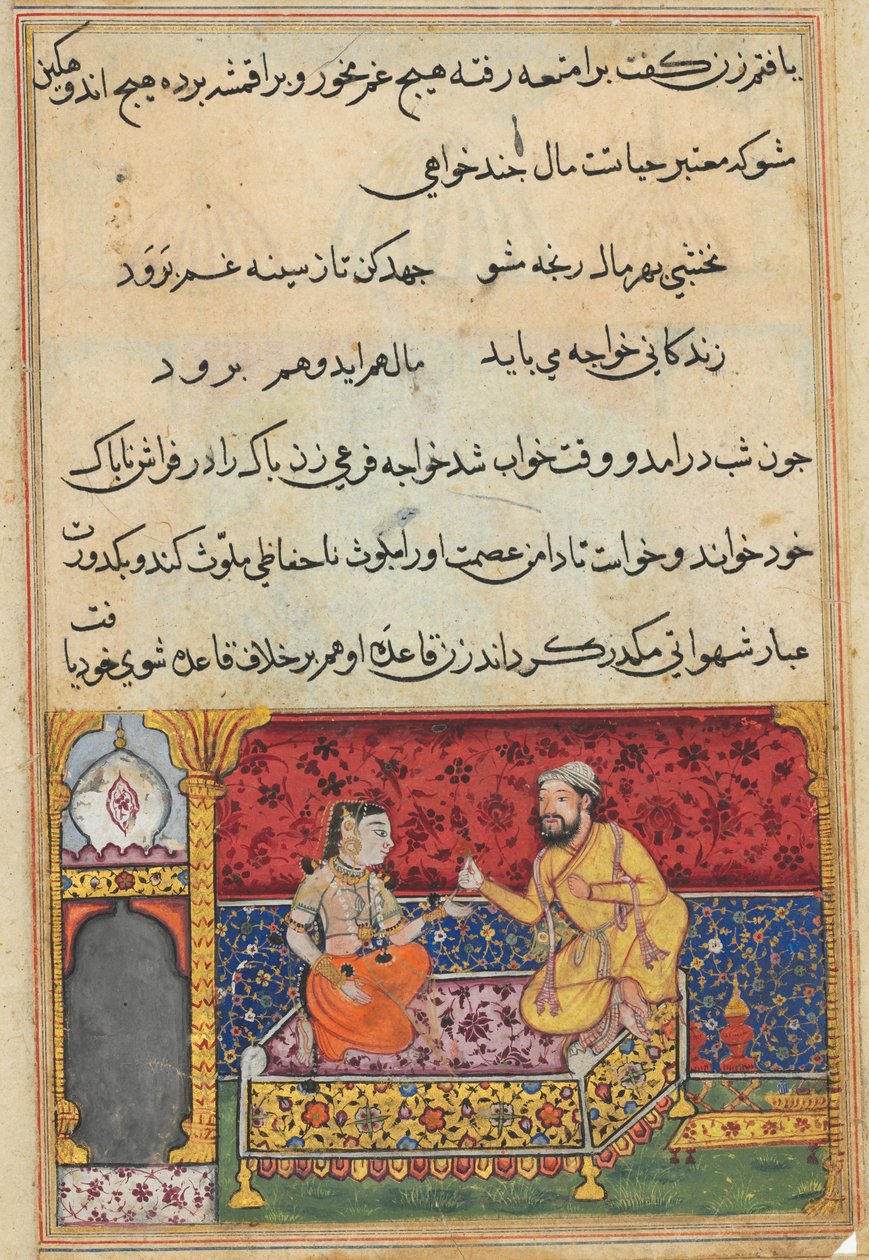 یافتم زن کفت بر امتعه رفته هیچ غم مخور و بر اقمشه برده هیچ اندوهکین
مشو که معتبر حیاتست مال جند خواهی
نخشبی بهر مال رنجه مشو جهد کن تا ز سینه غم بَرَوَد
زندکانی خواجه می باید مال هم اید و هم برود
جون شب درامد و وقت خواب شد خواجه فرعی زن باک را در فراش ناباک
خود خواند و خواست تا دامن عصمت او را بملوث ناحفاظی ملوّث کند و بکدورت
عبار شهواتی مکدر کرداند زن قاعدَه او هم بر خلاف قاعده شوی خود یافت